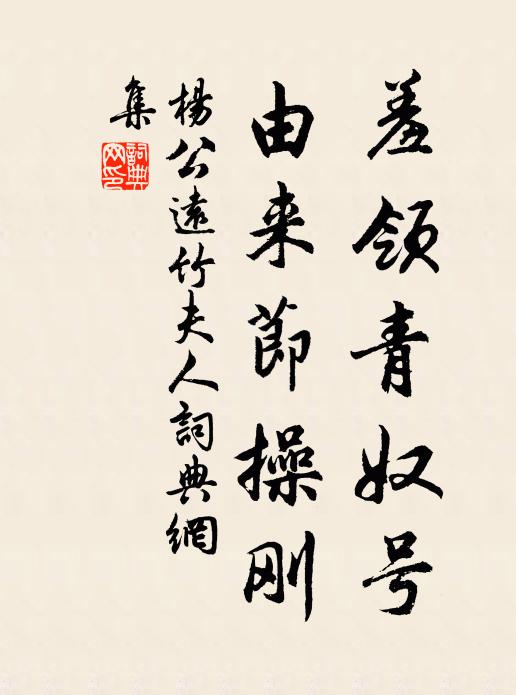 羞领青奴号
由来節操刚
楊公遠竹夫人詞典網
集
詞典網印